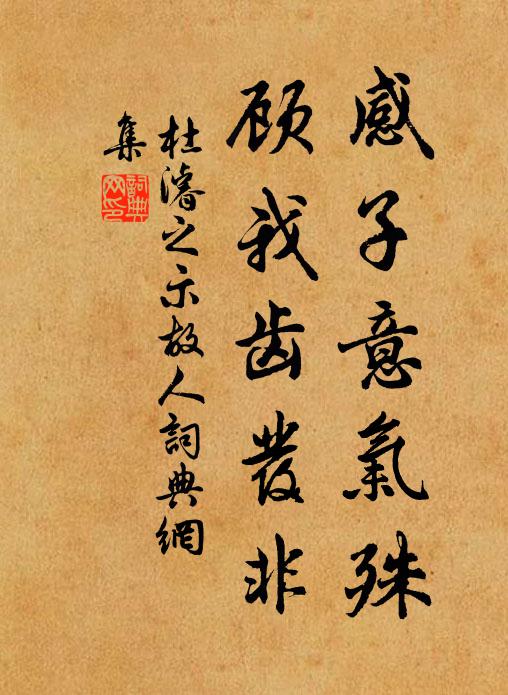 感子意氣殊
顾我齿發非
杜濬之示故人詞典網
集
詞典网印